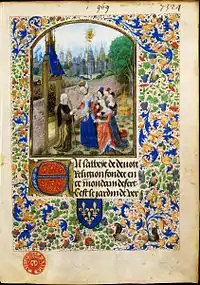 969 7524
En labbeye de deuote
Religion fondee en
ce mondain desert
Cest le jardin de ver